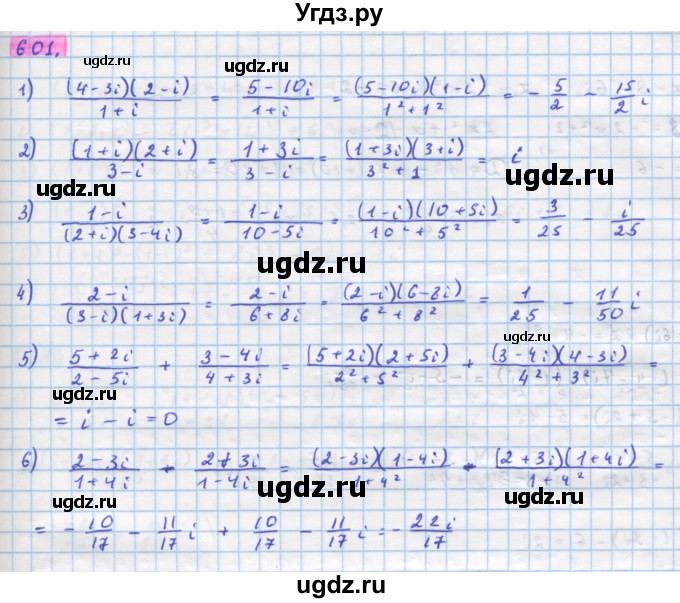 Угдз.ру
601.
1) (4-3i)(2-i)/1+i = 5-10i/1+i = (5-10i)(1-i)/1²+1² = -5/2 - 15/2 i
ugdz.ru
2) (1+i)(2+i)/3-i = 1+3i/3-i = (1+3i)(3+i)/3²+1 = i
ugdz.ru ugdz.ru
3) 1-i/(2+i)(3-4i) = 1-i/10-5i = (1-i)(10+5i)/10²+5² = 3/25 - i/25
ugdz.ru
4) 2-i/(3-i)(1+3i) = 2-i/6+8i = (2-i)(6-8i)/6²+8² = 1/25 - 11/50 i
ugdz.ru
5) 5+2i/2-5i + 3-4i/4+3i = (5+2i)(2+5i)/2²+5² + (3-4i)(4-3i)/4²+3² =
ugdz.ru ugdz.ru
= i - i = 0
6) 2-3i/1+4i - 2+3i/1-4i = (2-3i)(1-4i)/1+4² - (2+3i)(1+4i)/1+4² =
ugdz.ru ugdz.ru
= -10/17 - 11/17 i + 10/17 - 11/17 i = -22i/17
ugdz.ru
ugdz.ru